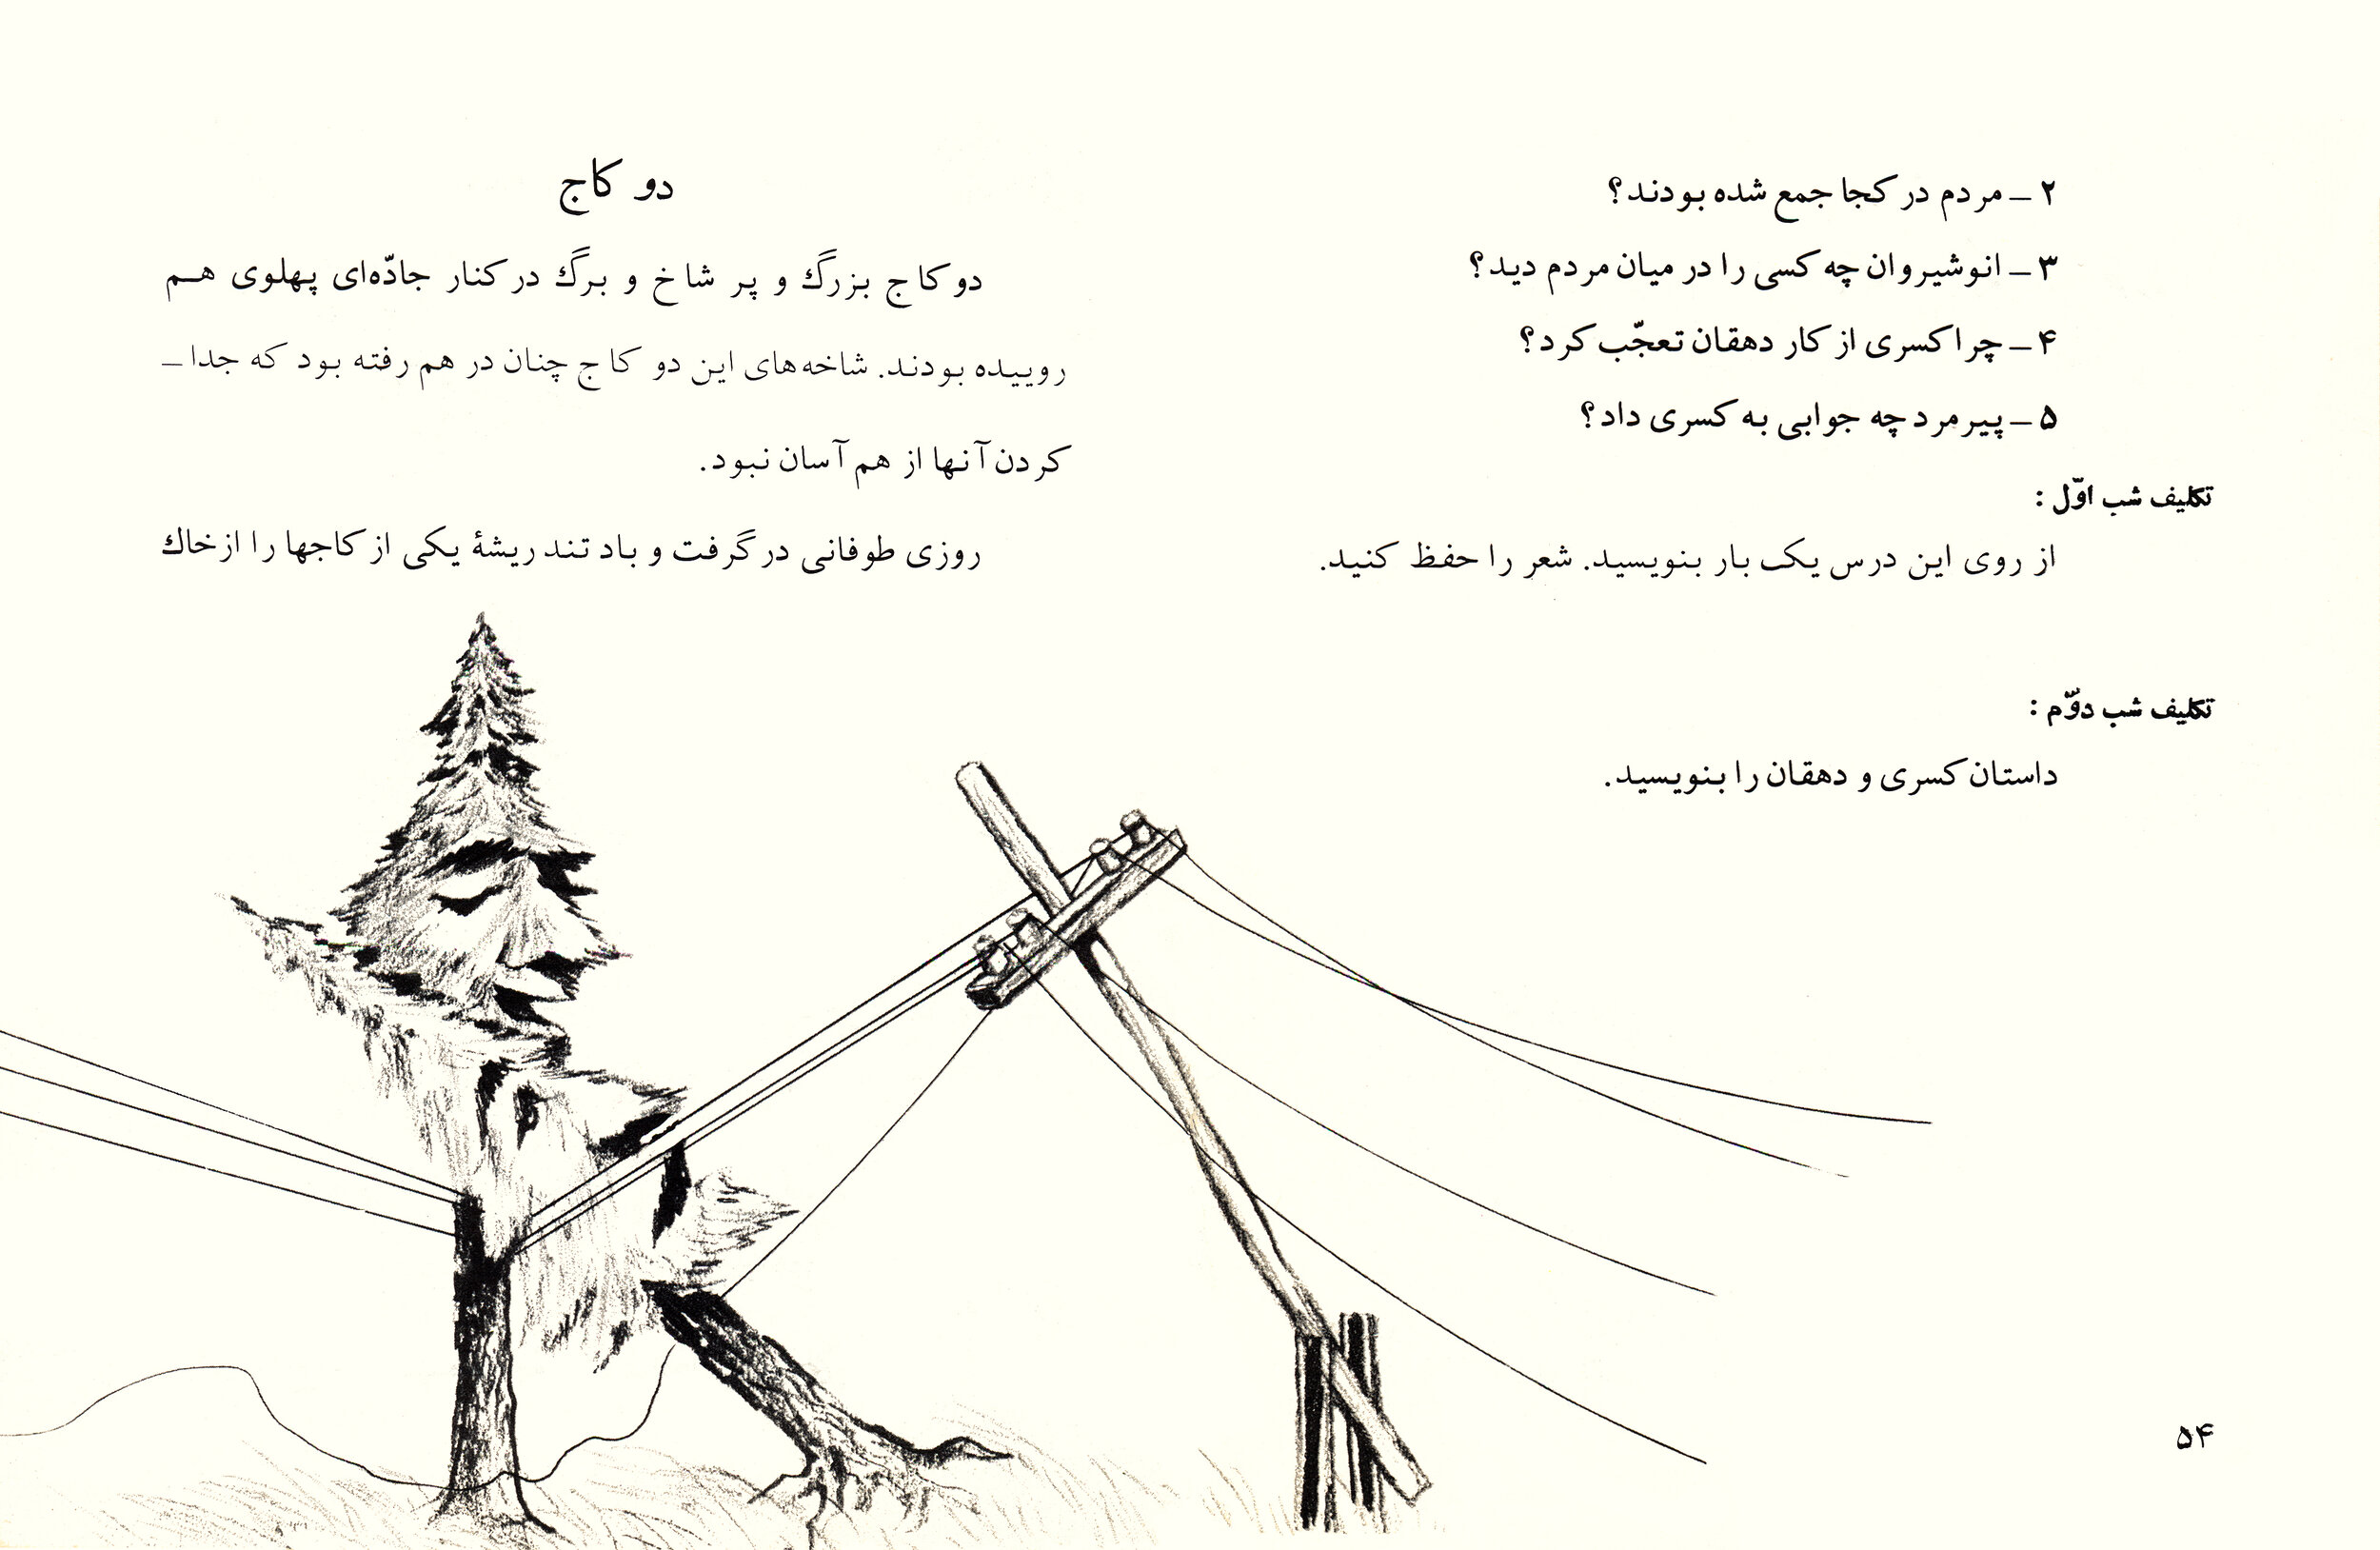 ۲ – مردم در کجا جمع شده بودند؟
۳ – انوشیروان چه کسی را در میان مردم دید؟
۴ – چرا کسری از کار دهقان تعجّب کرد؟
۵ – پیرمرد چه جوابی به کسری داد؟
تکلیف شب اوّل :
از روی این درس یک بار بنویسید. شعر را حفظ کنید.
تکلیف شب دوّم :
داستان کسری و دهقان را بنویسید.
۵۴
دو کاج
دو کاج بزرگ و پر شاخ و برگ در کنار جادّه‌ای پهلوی هم
روییده بودند. شاخه‌های این دو کاج چنان در هم رفته بود که جدا –
کردن آنها از هم آسان نبود.
روزی طوفانی در گرفت و باد تند ریشهٔ یکی از کاجها را از خاك